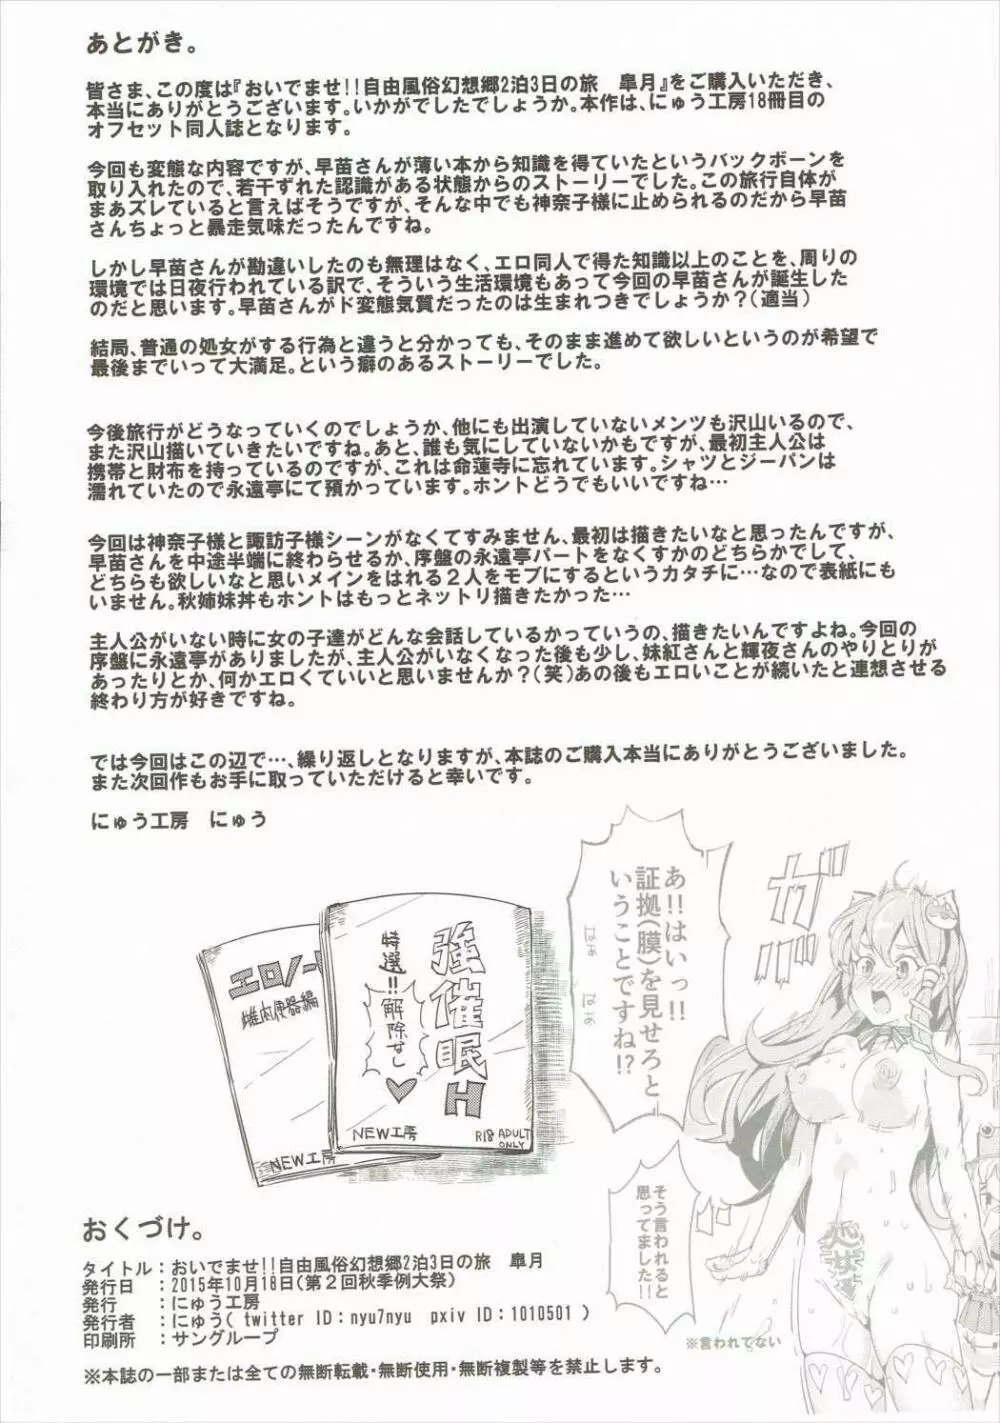 あとがき。
皆さま、この度は『おいでませ!!自由風俗幻想郷2泊3日の旅　皐月』をご購入いただき、
本当にありがとうございます。いかがでしたでしょうか。本作は、にゅう工房18冊目の
オフセット同人誌となります。
今回も変態な内容ですが、早苗さんが薄い本から知識を得ていたというバックボーンを
取り入れたので、若干ずれた認識がある状態からのストーリーでした。この旅行自体が
まあズレていると言えばそうですが、そんな中でも神奈子様に止められるのだから早苗
さんちょっと暴走気味だったんですね。
しかし早苗さんが勘違いしたのも無理はなく、エロ同人で得た知識以上のことを、周りの
環境では日夜行われている訳で、そういう生活環境もあって今回の早苗さんが誕生した
のだと思います。早苗さんがド変態気質だったのは生まれつきでしょうか？(適当)
結局、普通の処女がする行為と違うと分かっても、そのまま進めて欲しいというのが希望で
最後までいって大満足。という癖のあるストーリーでした。
今後旅行がどうなっていくのでしょうか、他にも出演していないメンツも沢山いるので、
また沢山描いていきたいですね。あと、誰も気にしていないかもですが、最初主人公は
携帯と財布を持っているのですが、これは命蓮寺に忘れています。シャツとジーパンは
濡れていたので永遠亭にて預かっています。ホントどうでもいいですね…
今回は神奈子様と諏訪子様シーンがなくてすみません、最初は描きたいなと思ったんですが、
早苗さんを中途半端に終わらせるか、序盤の永遠亭パートをなくすかのどちらかでして、
どちらも欲しいなと思いメインをはれる２人をモブにするというカタチに…なので表紙にも
いません。秋姉妹丼もホントはもっとネットリ描きたかった…
主人公がいない時に女の子達がどんな会話しているかっていうの、描きたいんですよね。今回の
序盤に永遠亭がありましたが、主人公がいなくなった後も少し、妹紅さんと輝夜さんのやりとりが
あったりとか、何かエロくていいと思いませんか？(笑)あの後もエロいことが続いたと連想させる
終わり方が好きですね。
では今回はこの辺で…、繰り返しとなりますが、本誌のご購入本当にありがとうございました。
また次回作もお手に取っていただけると幸いです。
にゅう工房　にゅう
あ!!はいっ!!
証拠(膜)を見せろと
いうことですね!?
はぁ
はぁ
ガバ
強催眠H
特選!!解除なし
NEW工房
R18 ADULT
ONLY
エロノー
雌肉便器編
NEW工房
そう言われると
思ってました!!
処女
※言われてない
おくづけ。
タイトル：おいでませ!!自由風俗幻想郷2泊3日の旅　皐月
発行日　：2015年10月18日(第２回秋季例大祭)
発行　　：にゅう工房
発行者　：にゅう( twitter ID：nyu7nyu　pxiv ID：1010501 )
印刷所　：サングループ
※本誌の一部または全ての無断転載・無断使用・無断複製等を禁止します。